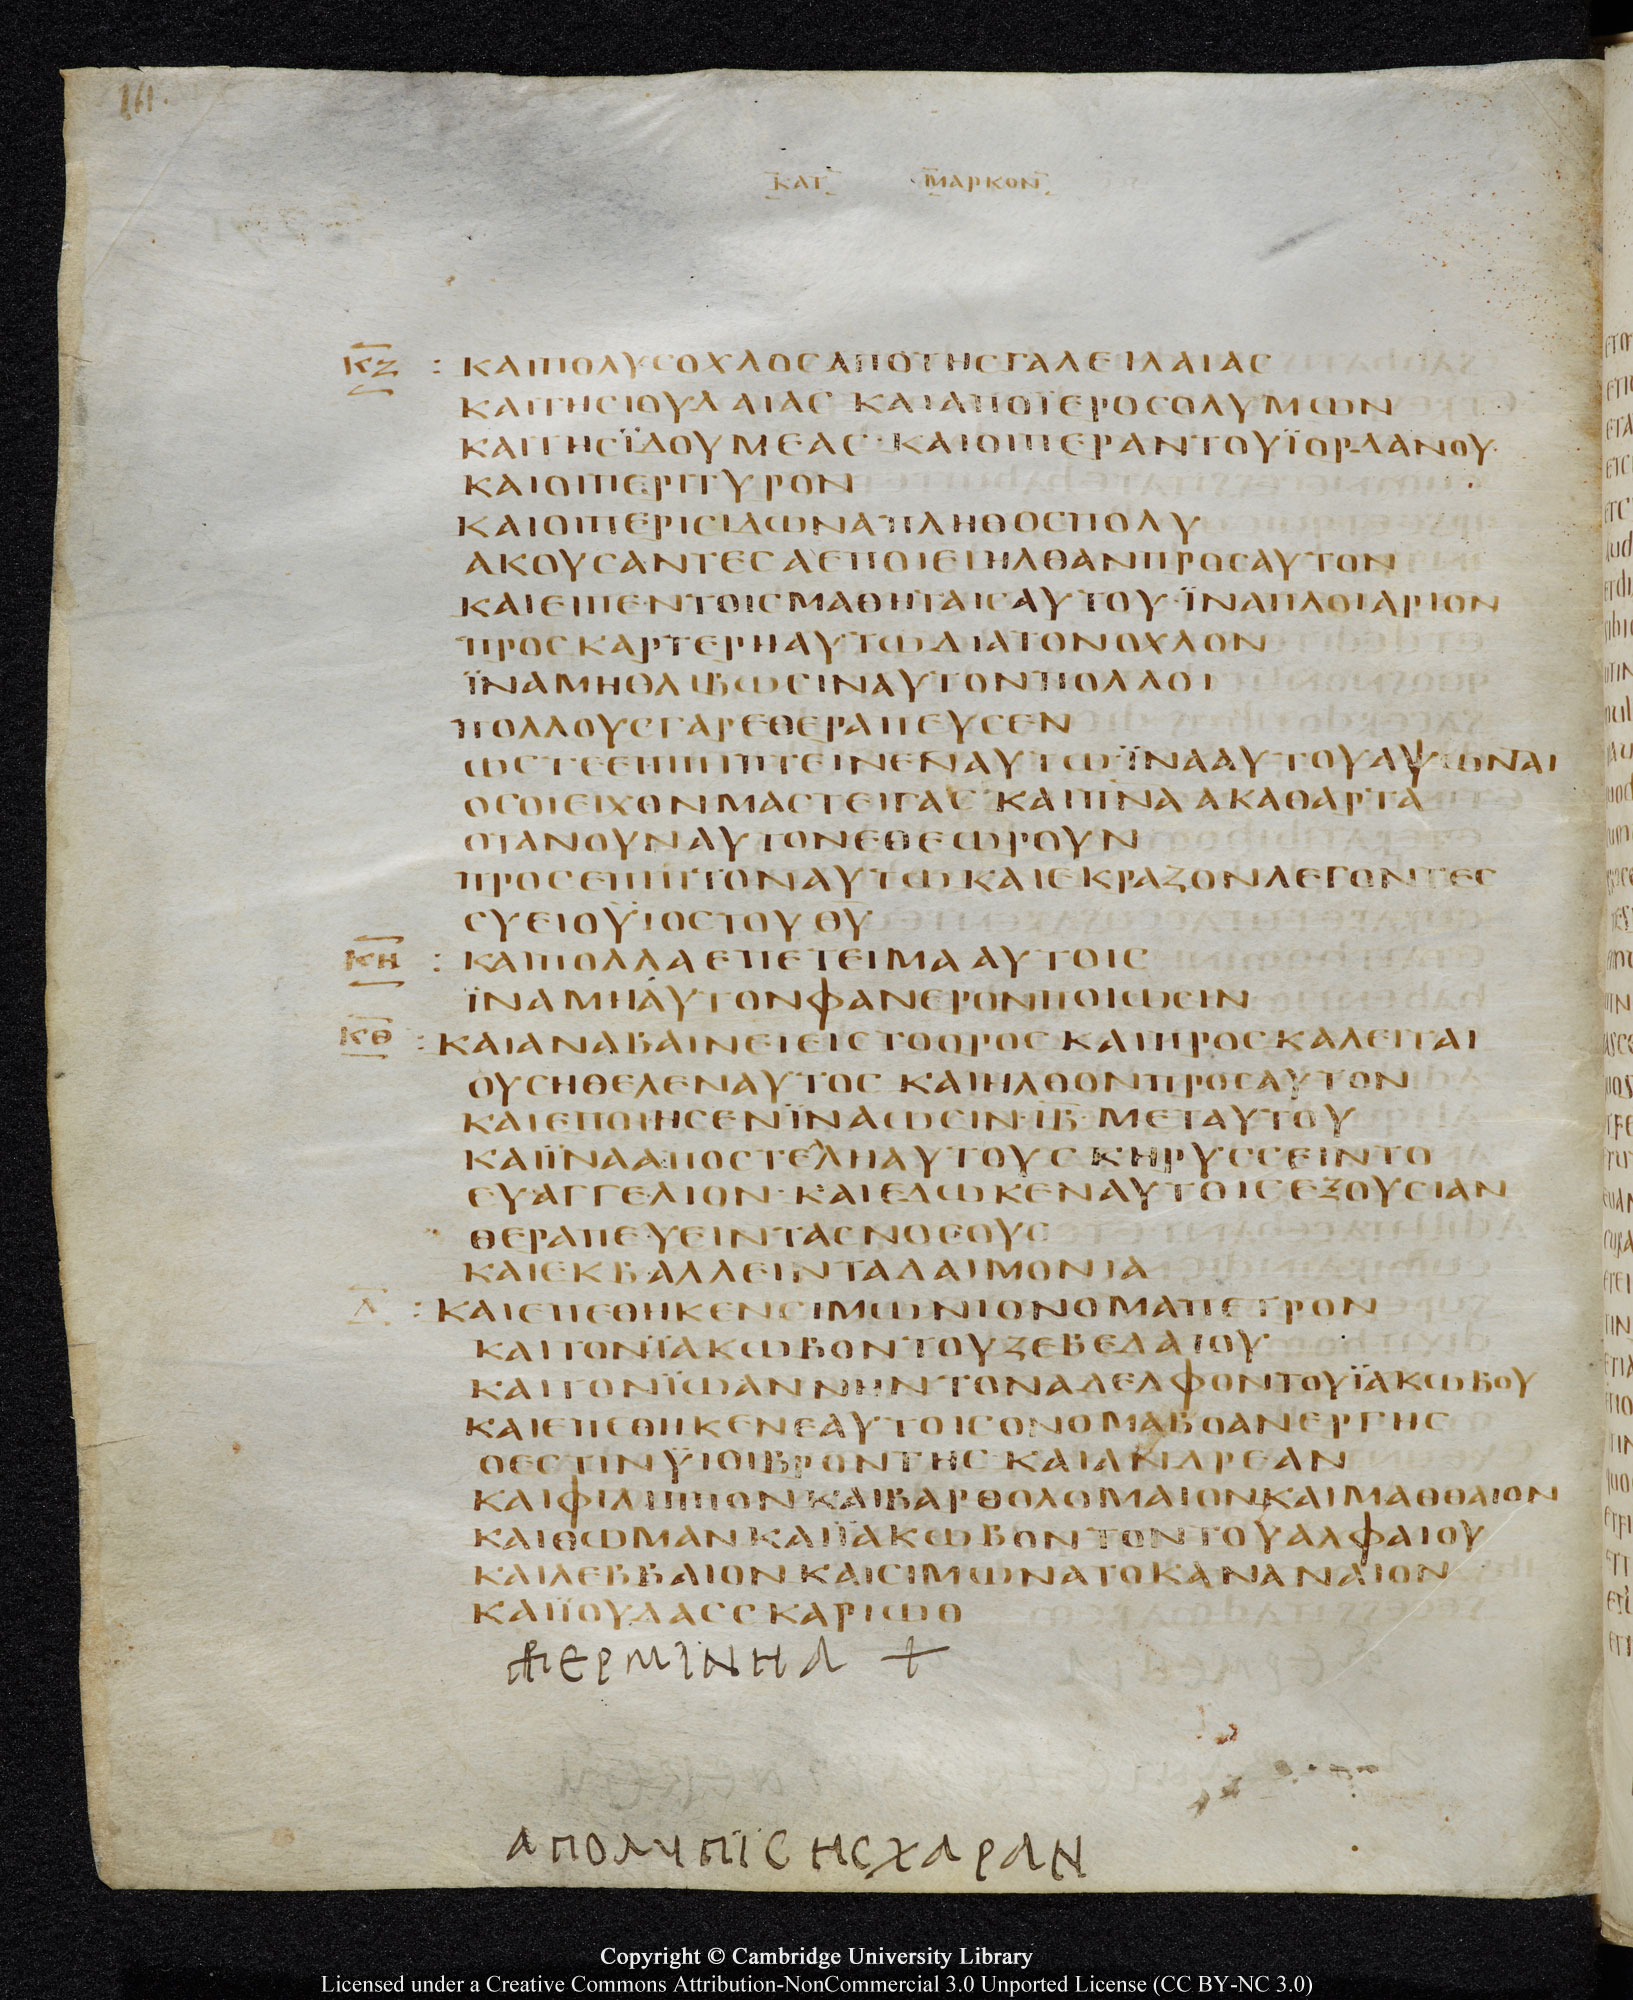 141.
ΚΑΤ ΜΑΡΚΟΝ
ΚΖ : ΚΑΙΠΟΛΥΣΟΧΛΟΣΑΠΟΤΗΣΓΑΛΕΙΛΑΙΑΣ
ΚΑΙΤΗΣΙΟΥΔΑΙΑΣ ΚΑΙΑΠΟΪΕΡΟΣΟΛΥΜΩΝ
ΚΑΙΤΗΣΪΔΟΥΜΕΑΣ · ΚΑΙΟΙΠΕΡΑΝΤΟΥΪΟΡΔΑΝΟΥ·
ΚΑΙΟΙΠΕΡΙΤΥΡΟΝ
ΚΑΙΟΙΠΕΡΙΣΙΔΩΝΑΠΛΗΘΟΣΠΟΛΥ
ΑΚΟΥΣΑΝΤΕΣΑΕΠΟΙΕΙΗΛΘΑΝΠΡΟΣΑΥΤΟΝ
ΚΑΙΕΙΠΕΝΤΟΙΣΜΑΘΗΤΑΙΣΑΥΤΟΥ·ΪΝΑΠΛΟΙΑΡΙΟΝ
ΠΡΟΣΚΑΡΤΕΡΗΑΥΤΩΔΙΑΤΟΝΟΧΛΟΝ
ΪΝΑΜΗΘΛΙΒΩΣΙΝΑΥΤΟΝΠΟΛΛΟΙ
ΠΟΛΛΟΥΣΓΑΡΕΘΕΡΑΠΕΥΣΕΝ
ΩΣΤΕΕΠΙΠΙΠΤΕΙΝΕΝΑΥΤΩ·ΪΝΑΑΥΤΟΥΑΨΩΝΑΙ
ΟΣΟΙΕΙΧΟΝΜΑΣΤΕΙΓΑΣ ΚΑΙΠΝΑΑΚΑΘΑΡΤΑ
ΟΤΑΝΟΥΝΑΥΤΟΝΕΘΕΩΡΟΥΝ
ΠΡΟΣΕΠΙΠΤΟΝΑΥΤΩ ΚΑΙΕΚΡΑΖΟΝΛΕΓΟΝΤΕΣ
ΣΥΕΙΟΥΪΟΣΤΟΥ ΘΥ
ΚΗ : ΚΑΙΠΟΛΛΑΕΠΕΤΕΙΜΑΑΥΤΟΙΣ
ΪΝΑΜΗΑΥΤΟΝΦΑΝΕΡΟΝΠΟΙΩΣΙΝ
ΚΘ : ΚΑΙΑΝΑΒΑΙΝΕΙΕΙΣΤΟΟΡΟΣ ΚΑΙΠΡΟΣΚΑΛΕΙΤΑΙ
ΟΥΣΗΘΕΛΕΝΑΥΤΟΣ ΚΑΙΗΛΘΟΝΠΡΟΣΑΥΤΟΝ
ΚΑΙΕΠΟΙΗΣΕΝΪΝΑΩΣΙΝ·ΙΒ· ΜΕΤΑΥΤΟΥ
ΚΑΙΪΝΑΑΠΟΣΤΕΛΗΑΥΤΟΥΣ ΚΗΡΥΣΣΕΙΝΤΟ
ΕΥΑΓΓΕΛΙΟΝ · ΚΑΙΕΔΩΚΕΝΑΥΤΟΙΣΕΞΟΥΣΙΑΝ
ΘΕΡΑΠΕΥΕΙΝΤΑΣΝΟΣΟΥΣ
ΚΑΙΕΚΒΑΛΛΕΙΝΤΑΔΑΙΜΟΝΙΑ
Λ : ΚΑΙΕΠΕΘΗΚΕΝΣΙΜΩΝΙΟΝΟΜΑΠΕΤΡΟΝ
ΚΑΙΤΟΝΪΑΚΩΒΟΝΤΟΥΖΕΒΕΔΑΙΟΥ
ΚΑΙΤΟΝΪΩΑΝΝΗΝΤΟΝΑΔΕΛΦΟΝΤΟΥΪΑΚΩΒΟΥ
ΚΑΙΕΠΕΘΗΚΕΝΕΑΥΤΟΙΣΟΝΟΜΑΒΟΑΝΕΡΓΗΣ
ΟΕΣΤΙΝΫΙΟΙΒΡΟΝΤΗΣ ΚΑΙΑΝΔΡΕΑΝ
ΚΑΙΦΙΛΙΠΠΟΝΚΑΙΒΑΡΘΟΛΟΜΑΙΟΝΚΑΙΜΑΘΘΑΙΟΝ
ΚΑΙΘΩΜΑΝΚΑΙΪΑΚΩΒΟΝΤΟΝΤΟΥΑΛΦΑΙΟΥ
ΚΑΙΛΕΒΒΑΙΟΝ ΚΑΙΣΙΜΩΝΑΤΟΚΑΝΑΝΑΙΟΝ
ΚΑΙΪΟΥΔΑΣΣΚΑΡΙΩΘ
ΕΡΜΙΝΗΑ +
ΑΠΟΛΥΠΙΣΗΣΧΑΡΑΝ
Copyright © Cambridge University Library
Licensed under a Creative Commons Attribution-NonCommercial 3.0 Unported License (CC BY-NC 3.0)